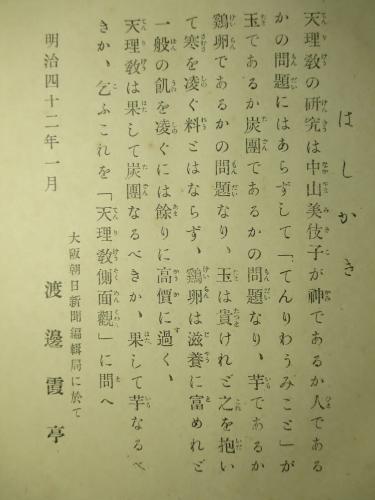 はしかき
天理敎の硏究は中山美伎子が神であるか人である
かの問題にはあらずして「てんりわうみこと」が
玉であるか炭團であるかの問題なり、芋であるか
鷄卵であるかの問題なり、玉は貴けれど之を抱い
て寒を凌ぐ料とはならず、鷄卵は滋養に富めれど
一般の飢を凌ぐには餘りに高價に過く、
天理敎は果して炭團なるべきか、果して芋なるべ
きか、乞ふこれを「天理敎側面觀」に問へ
明治四十二年一月
大阪朝日新聞編輯局に於て
渡邊霞亭